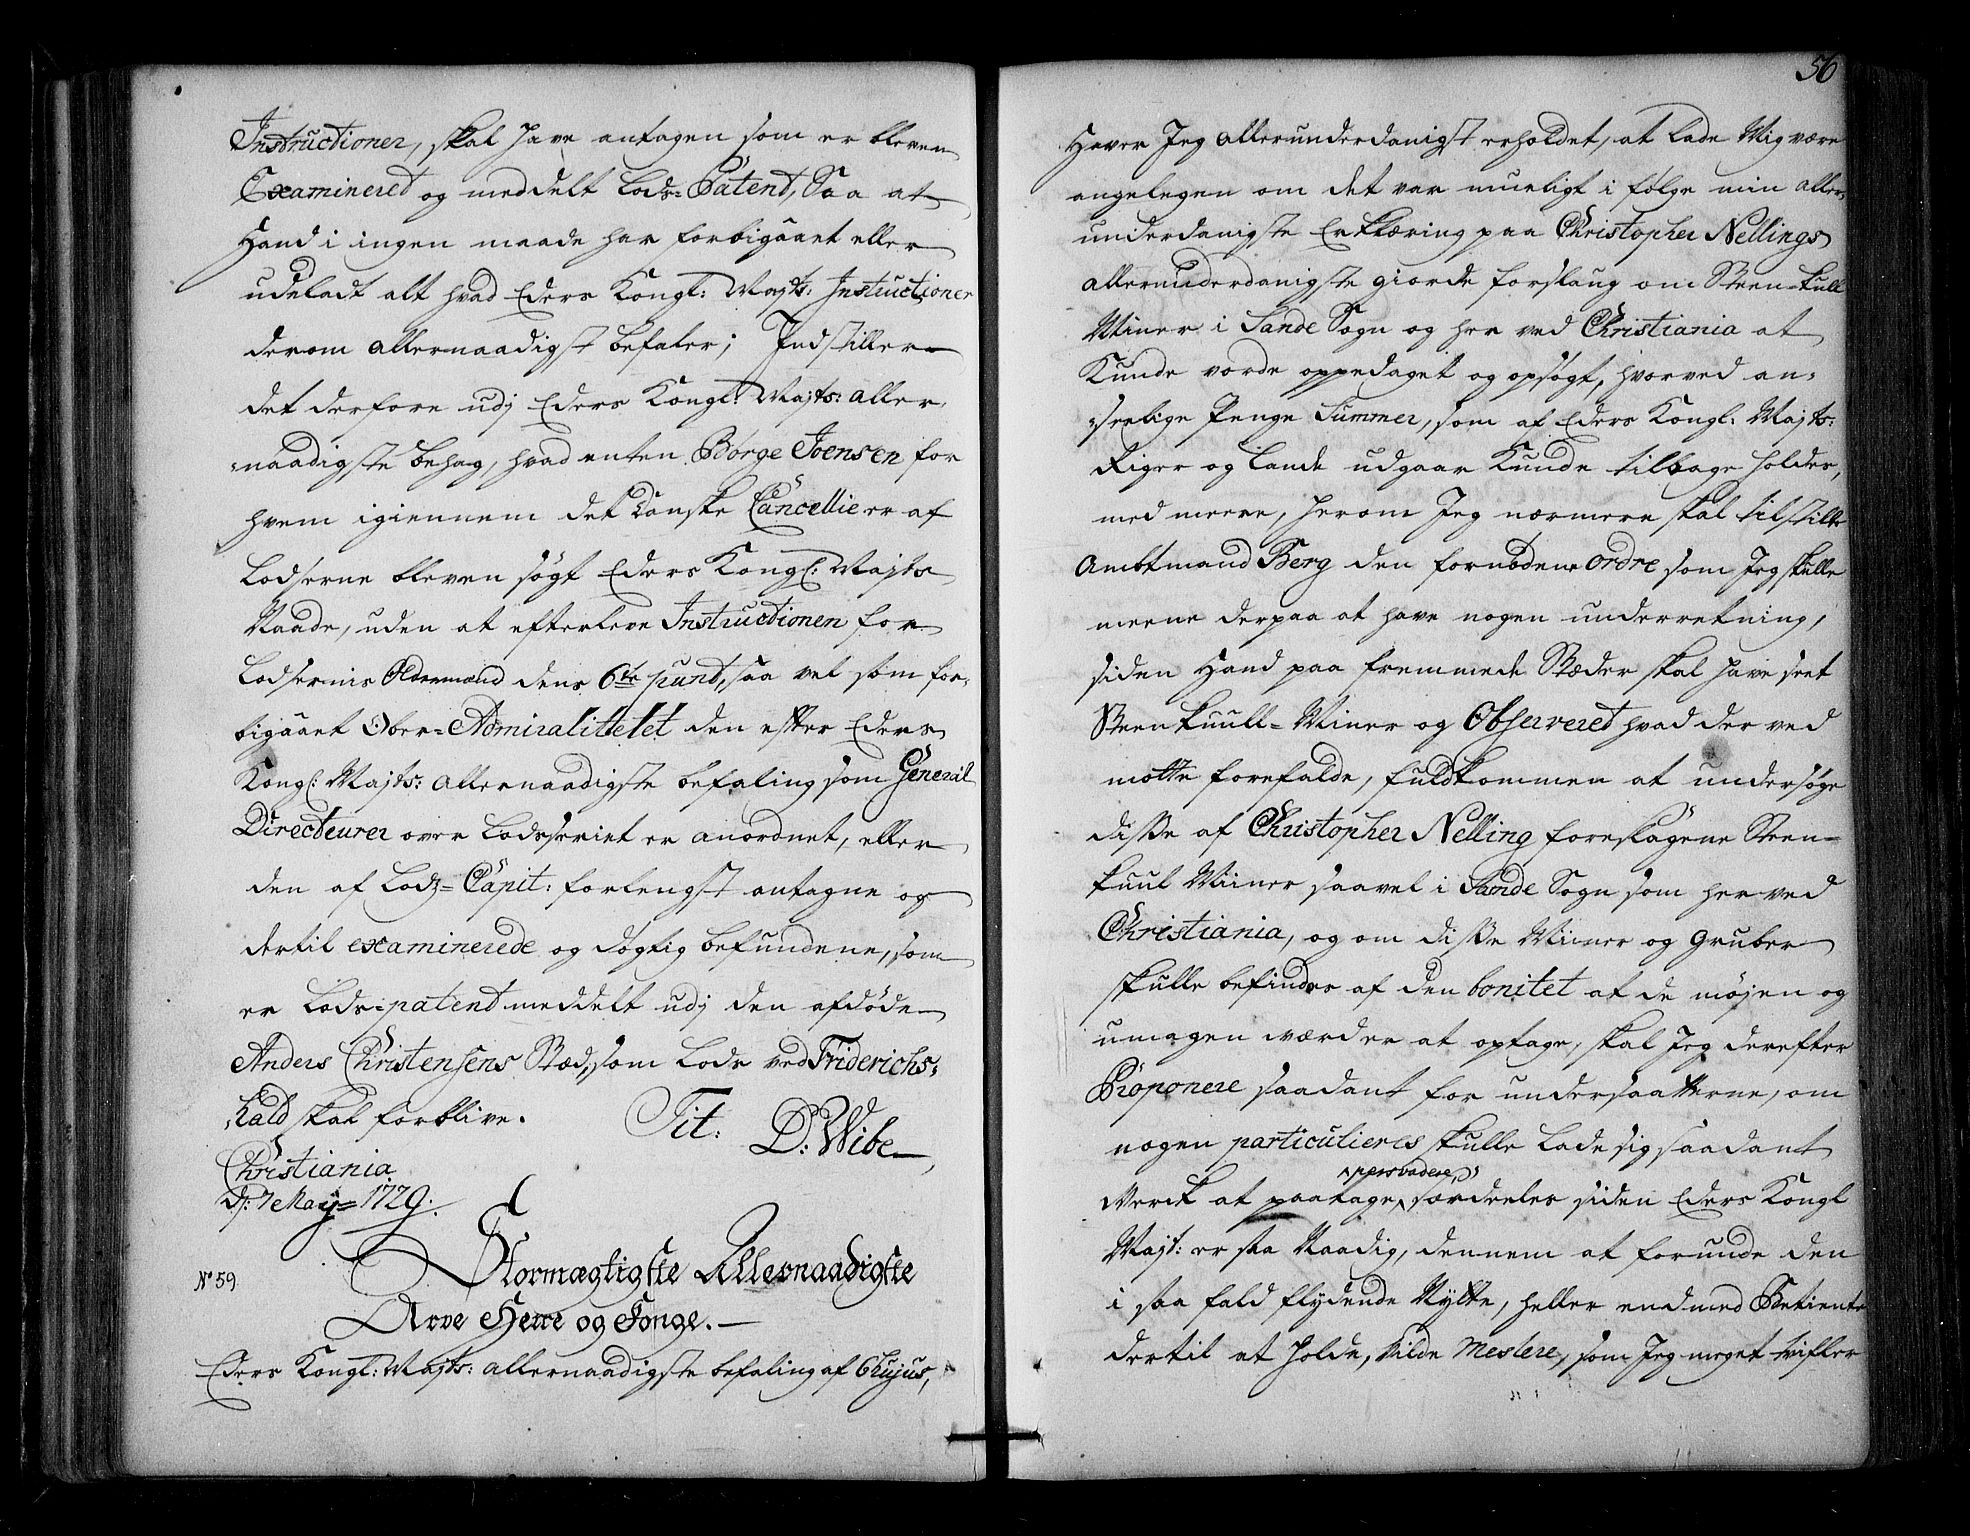 Instructioner, skal have antagen som er bleven
Examineret og meddelt Lods-Patent, Saa at
Hand i ingen maade har forbigaaet eller
udeladt alt hvad Eders Kongl: Mayts: Instructioner
derom allernaadigst befaler; Indstiller
det derfore udj Eders Kongl: Mayts: aller-
naadigste behag, hvad enten Børge Joensen for
hvem igiennem det danske Cancellie er af
Lodserne bleven søgt Eders Kongl: Mayts
Naade, uden at efterleve Instructionen for
Lodsernis Oldermænd dens 6te punct, saa vel som for-
bigaaet Ober-Admiralitetet den efter Eders
Kongl: Mayts: allernaadigste befaling som General
Directeurer over Lodsseriet er anordnet, eller
den af Lodz-Capit: forlengst antagne og
dertil examinerede og døgtig befundene, som
er Lods-patent meddelt udj den afdøde
Anders Christensens Stæd, som Lods ved Friderichs-
hald skal forblive. Tit: D: Wibe
Christiania
d: 7 May 1729.
No 59
Stormægtigste Allernaadigste
Arve Herre og Konge.
Eders Kongl: Mayts: allernaadigste befaling af 6 hujus,
56
Haver Jeg allerunderdanigst erholdet, at lade Mig være
angelegen om det var mueligt i følge min aller-
underdanigste Erklæring paa Christopher Nellings
allerunderdanigste giorde forslaug om Steen-kull
Miner i Sande Sogn og her ved Christiania at
Kunde vorde oppedaget og opsøgt, hvorved an-
seelige Penge Summer, som af Eders Kongl: Mayts:
Riger og Lande udgaar Kunde tilbage holdes,
med meere, herom Jeg nærmere skal tilstille
Ambtmand Berg den fornødene ordre som Jeg skulle
meene derpaa at have nogen underretning,
siden Hand paa fremmede Stæder skal have seet
Steenkuull-Miner og Observeret hvad der ved
motte forefalde, fuldkommen at undersøge
disse af Christopher Nelling foreslagene Steen-
kuul Miiner saavel i Sande Sogn som her ved
Christiania, og om disse Miiner og Gruber
skulle befindes af den bonitet at de møjen og
umagen værd er at optage, skal Jeg derefter
Proponere saadant for undersaatterne, om
nogen particulieres skulle lade sig saadant
Verck at paatage persvadere, særdeeles siden Eders Kongl
Mayt: er saa Naadig, dennem at forunde den
i saa fald flydende Nytte, heller end med Betiente
dertil at holde, Vilde Mestere, som Jeg meget tvifler